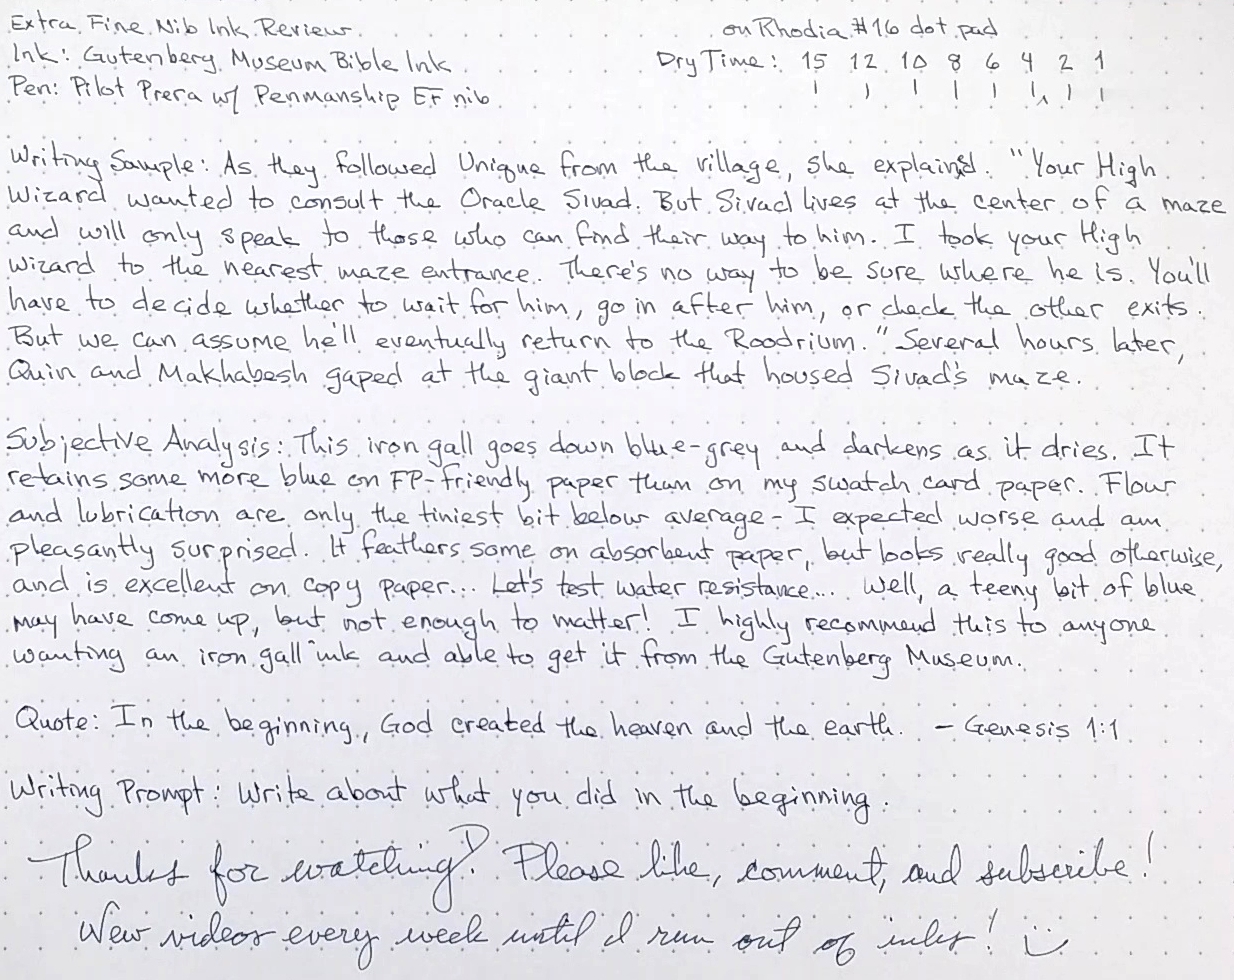 Extra Fine Nib Ink Review
on Rhodia #16 dot pad
Ink: Gutenberg Museum Bible Ink
Dry Time: 15 12 10 8 6 4 2 1
Pen: Pilot Prera w/ Penmanship EF nib
Writing Sample: As they followed Unique from the village, she explained. "Your High
Wizard wanted to consult the Oracle Sivad. But Sivad lives at the center of a maze
and will only speak to those who can find their way to him. I took your High
Wizard to the nearest maze entrance. There's no way to be sure where he is. You'll
have to decide whether to wait for him, go in after him, or check the other exits.
But we can assume he'll eventually return to the Roodrium." Several hours later,
Quin and Makhabesh gaped at the giant block that housed Sivad's maze.
Subjective Analysis: This iron gall goes down blue-grey and darkens as it dries. It
retains some more blue on FP-friendly paper than on my swatch card paper. Flow
and lubrication are only the tiniest bit below average - I expected worse and am
pleasantly surprised. It feathers some on absorbent paper, but looks really good otherwise,
and is excellent on copy paper... Let's test water resistance... Well, a teeny bit of blue
may have come up, but not enough to matter! I highly recommend this to anyone
wanting an iron gall ink and able to get it from the Gutenberg Museum.
Quote: In the beginning, God created the heaven and the earth. - Genesis 1:1
Writing Prompt: Write about what you did in the beginning.
Thanks for watching! Please like, comment, and subscribe!
New videos every week until I run out of inks!